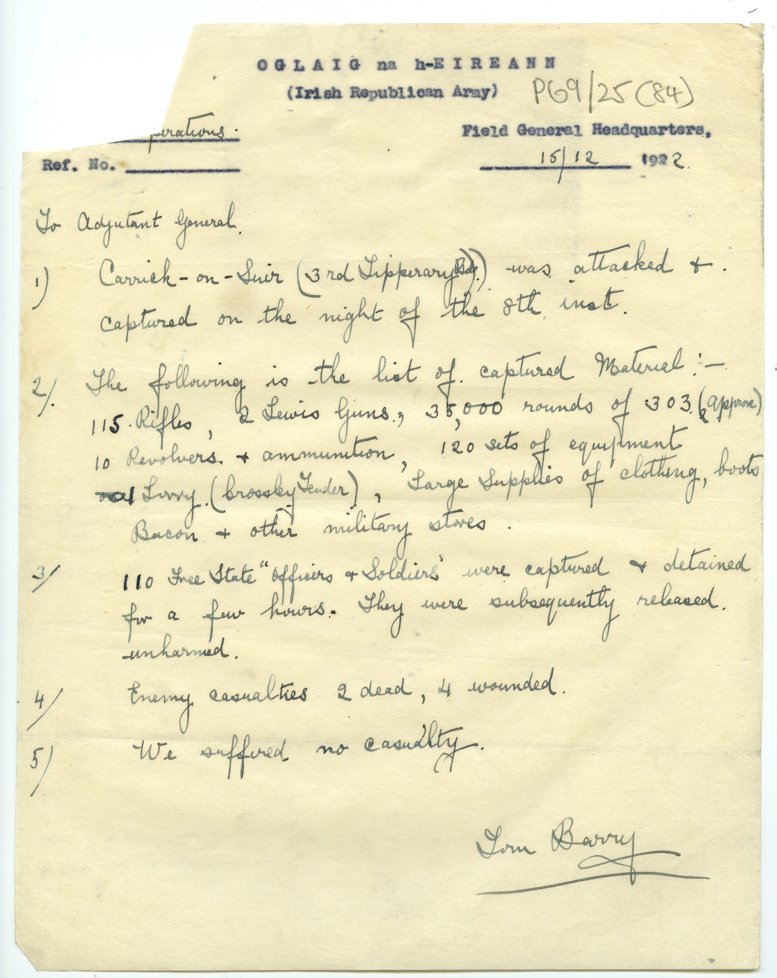 OGLAIG na h-EIREANN
(Irish Republican Army)
P69/25(84)
perations.
Field General Headquarters,
Ref. No.
15/12 1922.
To Adjutant General.
1) Carrick-on-Suir (3rd Tipperary Bde.) was attacked &
captured on the night of the 8th inst.
2/. The following is the list of captured Material:-
115 Rifles, 2 Lewis Guns, 35,000 rounds of 303 (approx)
10 Revolvers & ammunition, 120 sets of equipment
1 Lorry. (Crossley Tender), Large Supplies of clothing, boots
Bacon & other military stores.
3/ 110 Free State "Officers & Soldiers" were captured & detained
for a few hours. They were subsequently released.
unharmed.
4/ Enemy casualties 2 dead, 4 wounded.
5/ We suffired no casualty.
Tom Barry